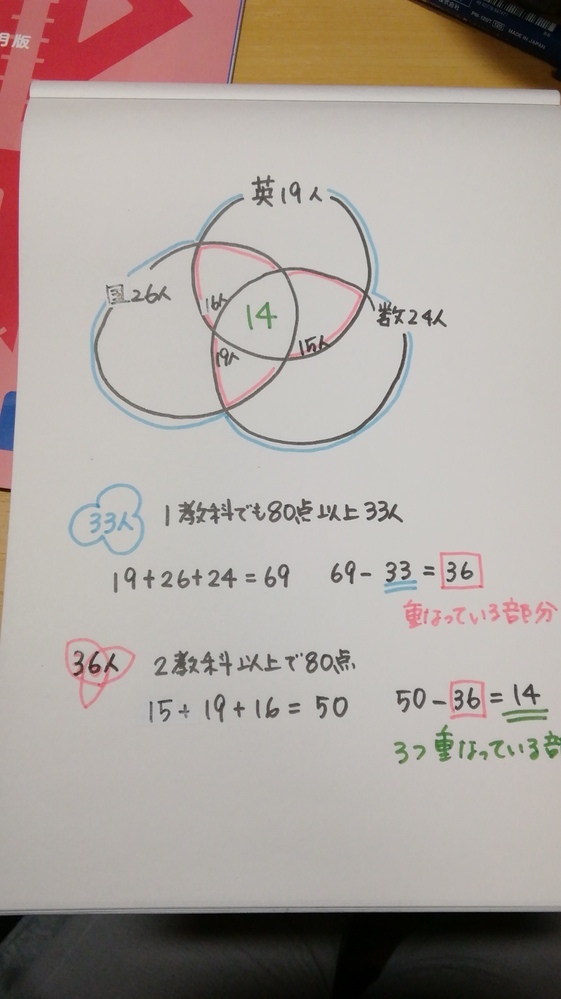 月版
MADE IN JAPAN
英19人
国26人
16人
14
数24人
19人
15人
33人 1教科でも80点以上33人
19+26+24=69 69-33=36
重なっている部分
36人 2教科以上で80点
15+19+16=50 50-36=14
3つ重なっている部